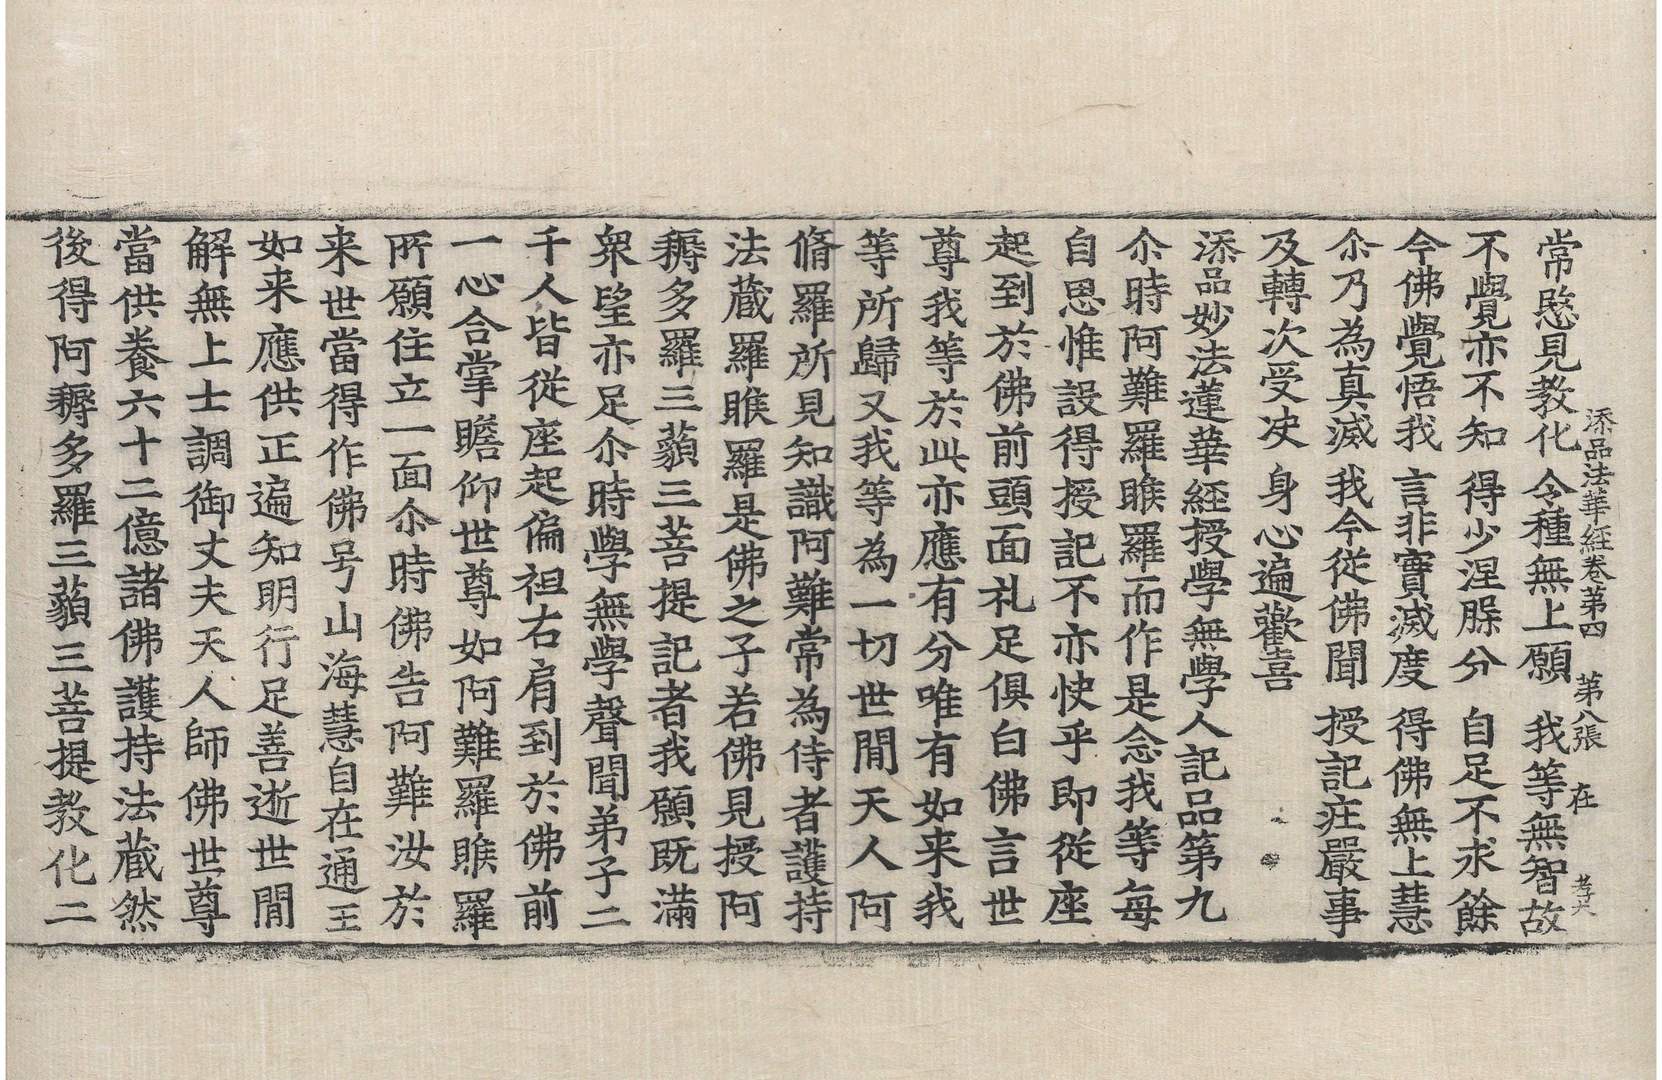 添品法華經卷第四　第八張　在　孝大
常愍見教化　令種無上願　我等無智故
不覺亦不知　得少涅槃分　自足不求餘
今佛覺悟我　言非實滅度　得佛無上慧
尒乃為真滅　我今從佛聞　授記庄嚴事
及轉次受决　身心遍歡喜
添品妙法蓮華經授學無學人記品第九
尒時阿難羅睺羅而作是念我等每
自思惟設得授記不亦快乎即從座
起到於佛前頭面礼足俱白佛言世
尊我等於此亦應有分唯有如来我
等所歸又我等為一切世閒天人阿
脩羅所見知識阿難常為侍者護持
法藏羅睺羅是佛之子若佛見授阿
耨多羅三藐三菩提記者我願既滿
衆望亦足尒時學無學聲聞弟子二
千人皆從座起偏袒右肩到於佛前
一心合掌瞻仰世尊如阿難羅睺羅
所願住立一面尒時佛告阿難汝於
来世當得作佛号山海慧自在通王
如来應供正遍知明行足善逝世閒
解無上士調御丈夫天人師佛世尊
當供養六十二億諸佛護持法藏然
後得阿耨多羅三藐三菩提教化二